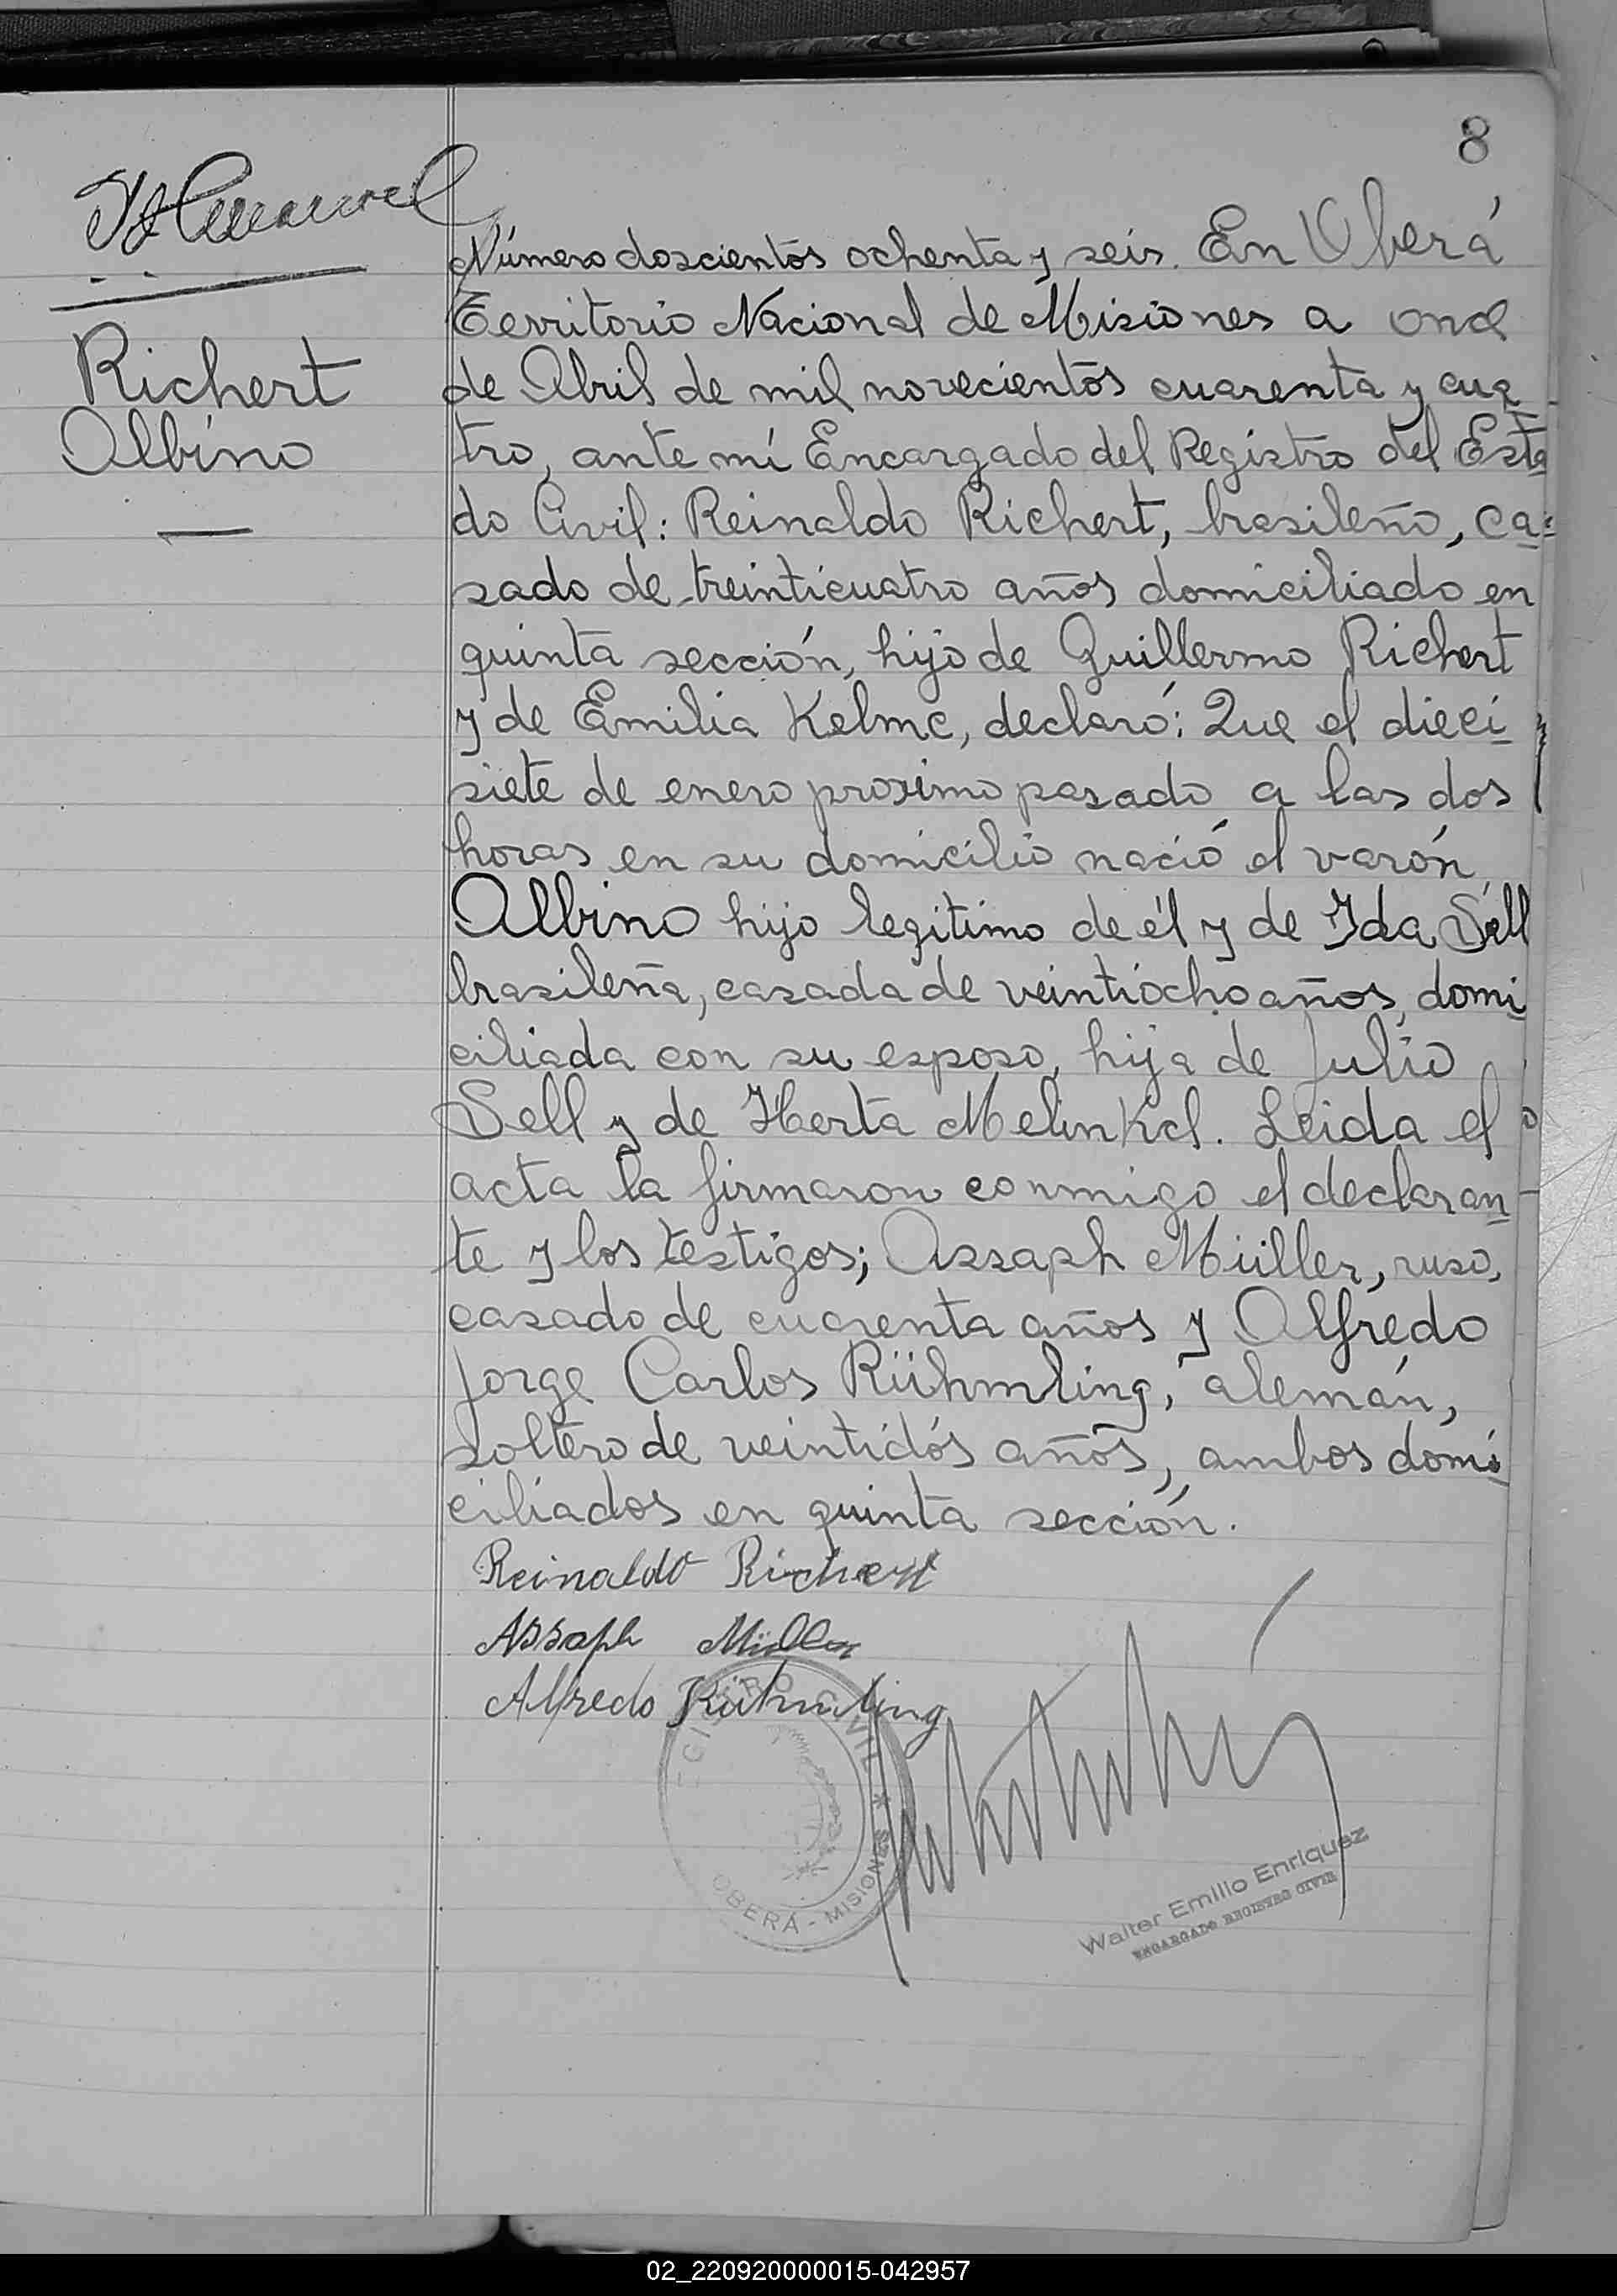 8
Número doscientos ochenta y seis. En Oberá
Territorio Nacional de Misiones a once
de Abril de mil novecientos cuarenta y cua
tro, ante mí Encargado del Registro del Esta
do Civil: Reinaldo Richert, brasileño, ca=
sado de treinticuatro años domiciliado en
quinta sección, hijo de Guillermo Richert
y de Emilia Kelmc, declaró: Que el dieci
siete de enero proximo pasado a las dos
horas en su domicilio nació el varón
Albino hijo legítimo de él y de Ida Sell
brasileña, casada de veintiocho años, domi
ciliada con su esposo, hija de Julio
Sell y de Herta Melinkcl. Leida el
acta la firmaron conmigo el declaran
te y los testigos; Assaph Müller, ruso,
casado de cuarenta años y Alfredo
Jorge Carlos Rühmling, alemán,
soltero de veintidós años, ambos domi
ciliados en quinta sección.
Richert
Albino
Reinaldo Richert
Assaph Müller
Alfredo Rühmling
REGISTRO CIVIL * OBERÁ - MISIONES
Walter Emilio Enriquez
ENCARGADO REGISTRO CIVIL
02_220920000015-042957